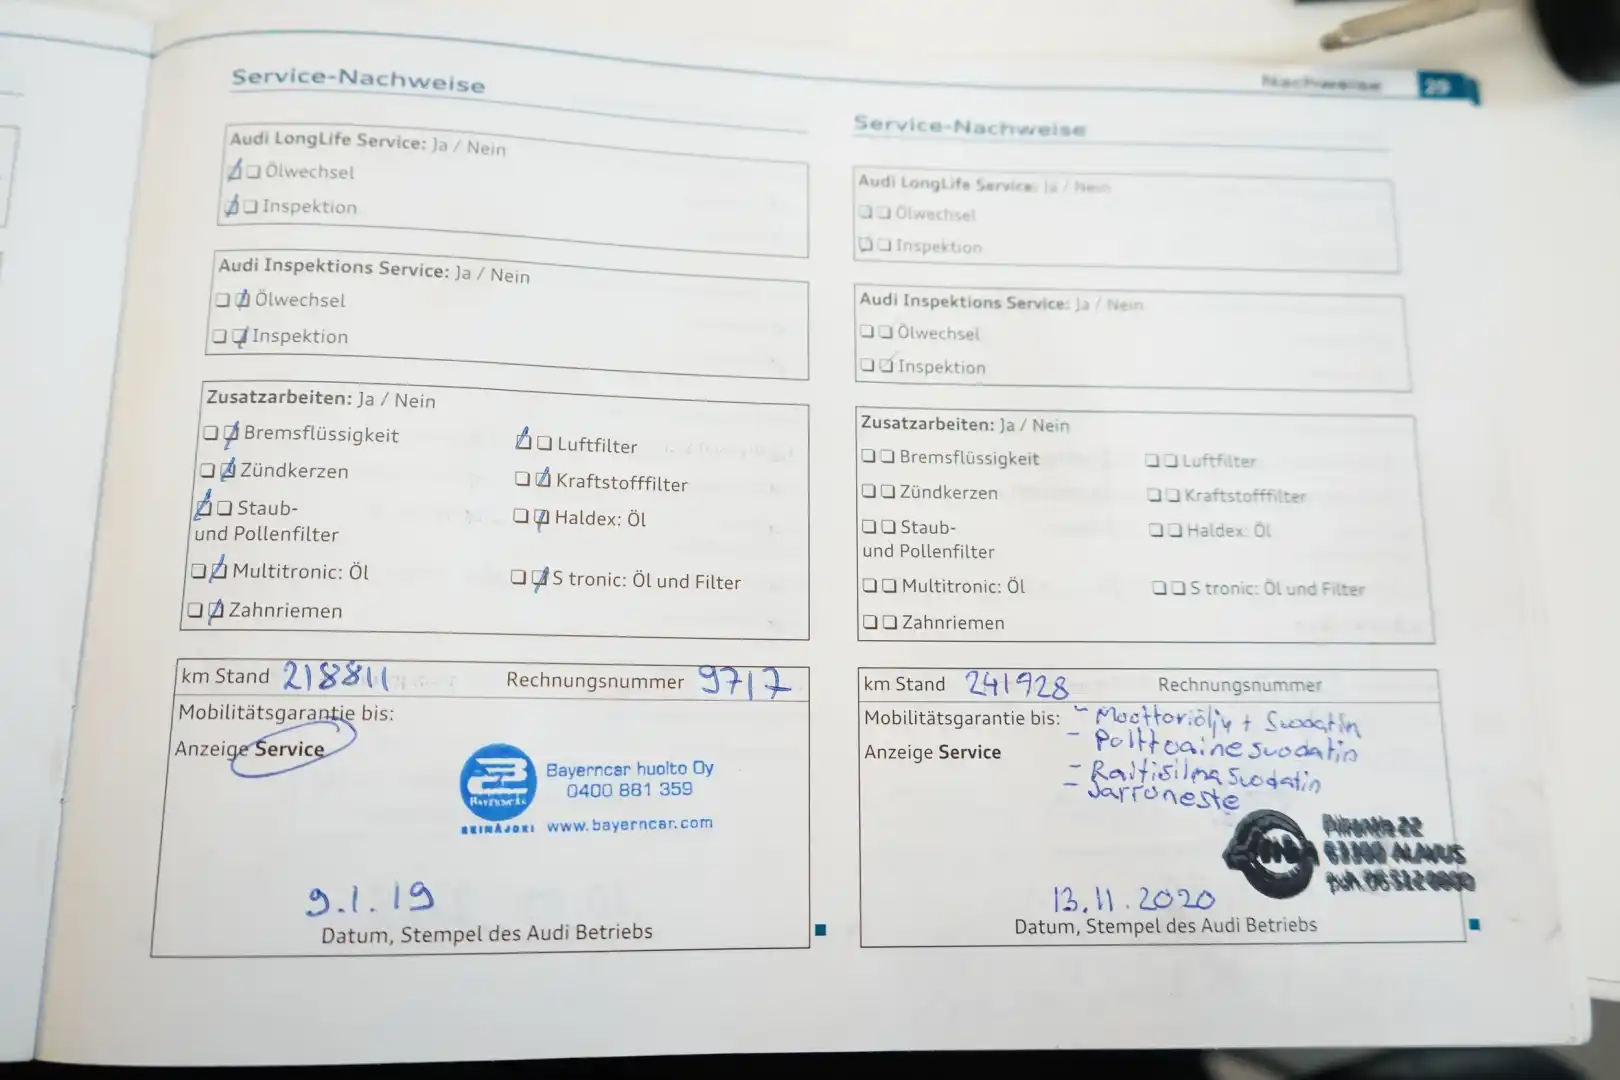 Nachweise 29
Service-Nachweise
Audi LongLife Service: Ja / Nein
Ölwechsel
Inspektion
Audi Inspektions Service: Ja / Nein
Ölwechsel
Inspektion
Zusatzarbeiten: Ja / Nein
Bremsflüssigkeit
Luftfilter
Zündkerzen
Kraftstofffilter
Staub-
und Pollenfilter
Haldex: Öl
Multitronic: Öl
S tronic: Öl und Filter
Zahnriemen
km Stand 218811 Rechnungsnummer 9717
Mobilitätsgarantie bis:
Anzeige Service
Bayerncar huolto Oy
0400 881 359
SEINÄJOKI www.bayerncar.com
9.1.19
Datum, Stempel des Audi Betriebs
Service-Nachweise
Audi LongLife Service: Ja / Nein
Ölwechsel
Inspektion
Audi Inspektions Service: Ja / Nein
Ölwechsel
Inspektion
Zusatzarbeiten: Ja / Nein
Bremsflüssigkeit
Luftfilter
Zündkerzen
Kraftstofffilter
Staub-
und Pollenfilter
Haldex: Öl
Multitronic: Öl
S tronic: Öl und Filter
Zahnriemen
km Stand 241928 Rechnungsnummer
Mobilitätsgarantie bis: - Moottoriöljy + Suodatin
- Polttoainesuodatin
Anzeige Service
- Raitisilmasuodatin
- Jarruneste
ALAVUS
13.11.2020
Datum, Stempel des Audi Betriebs